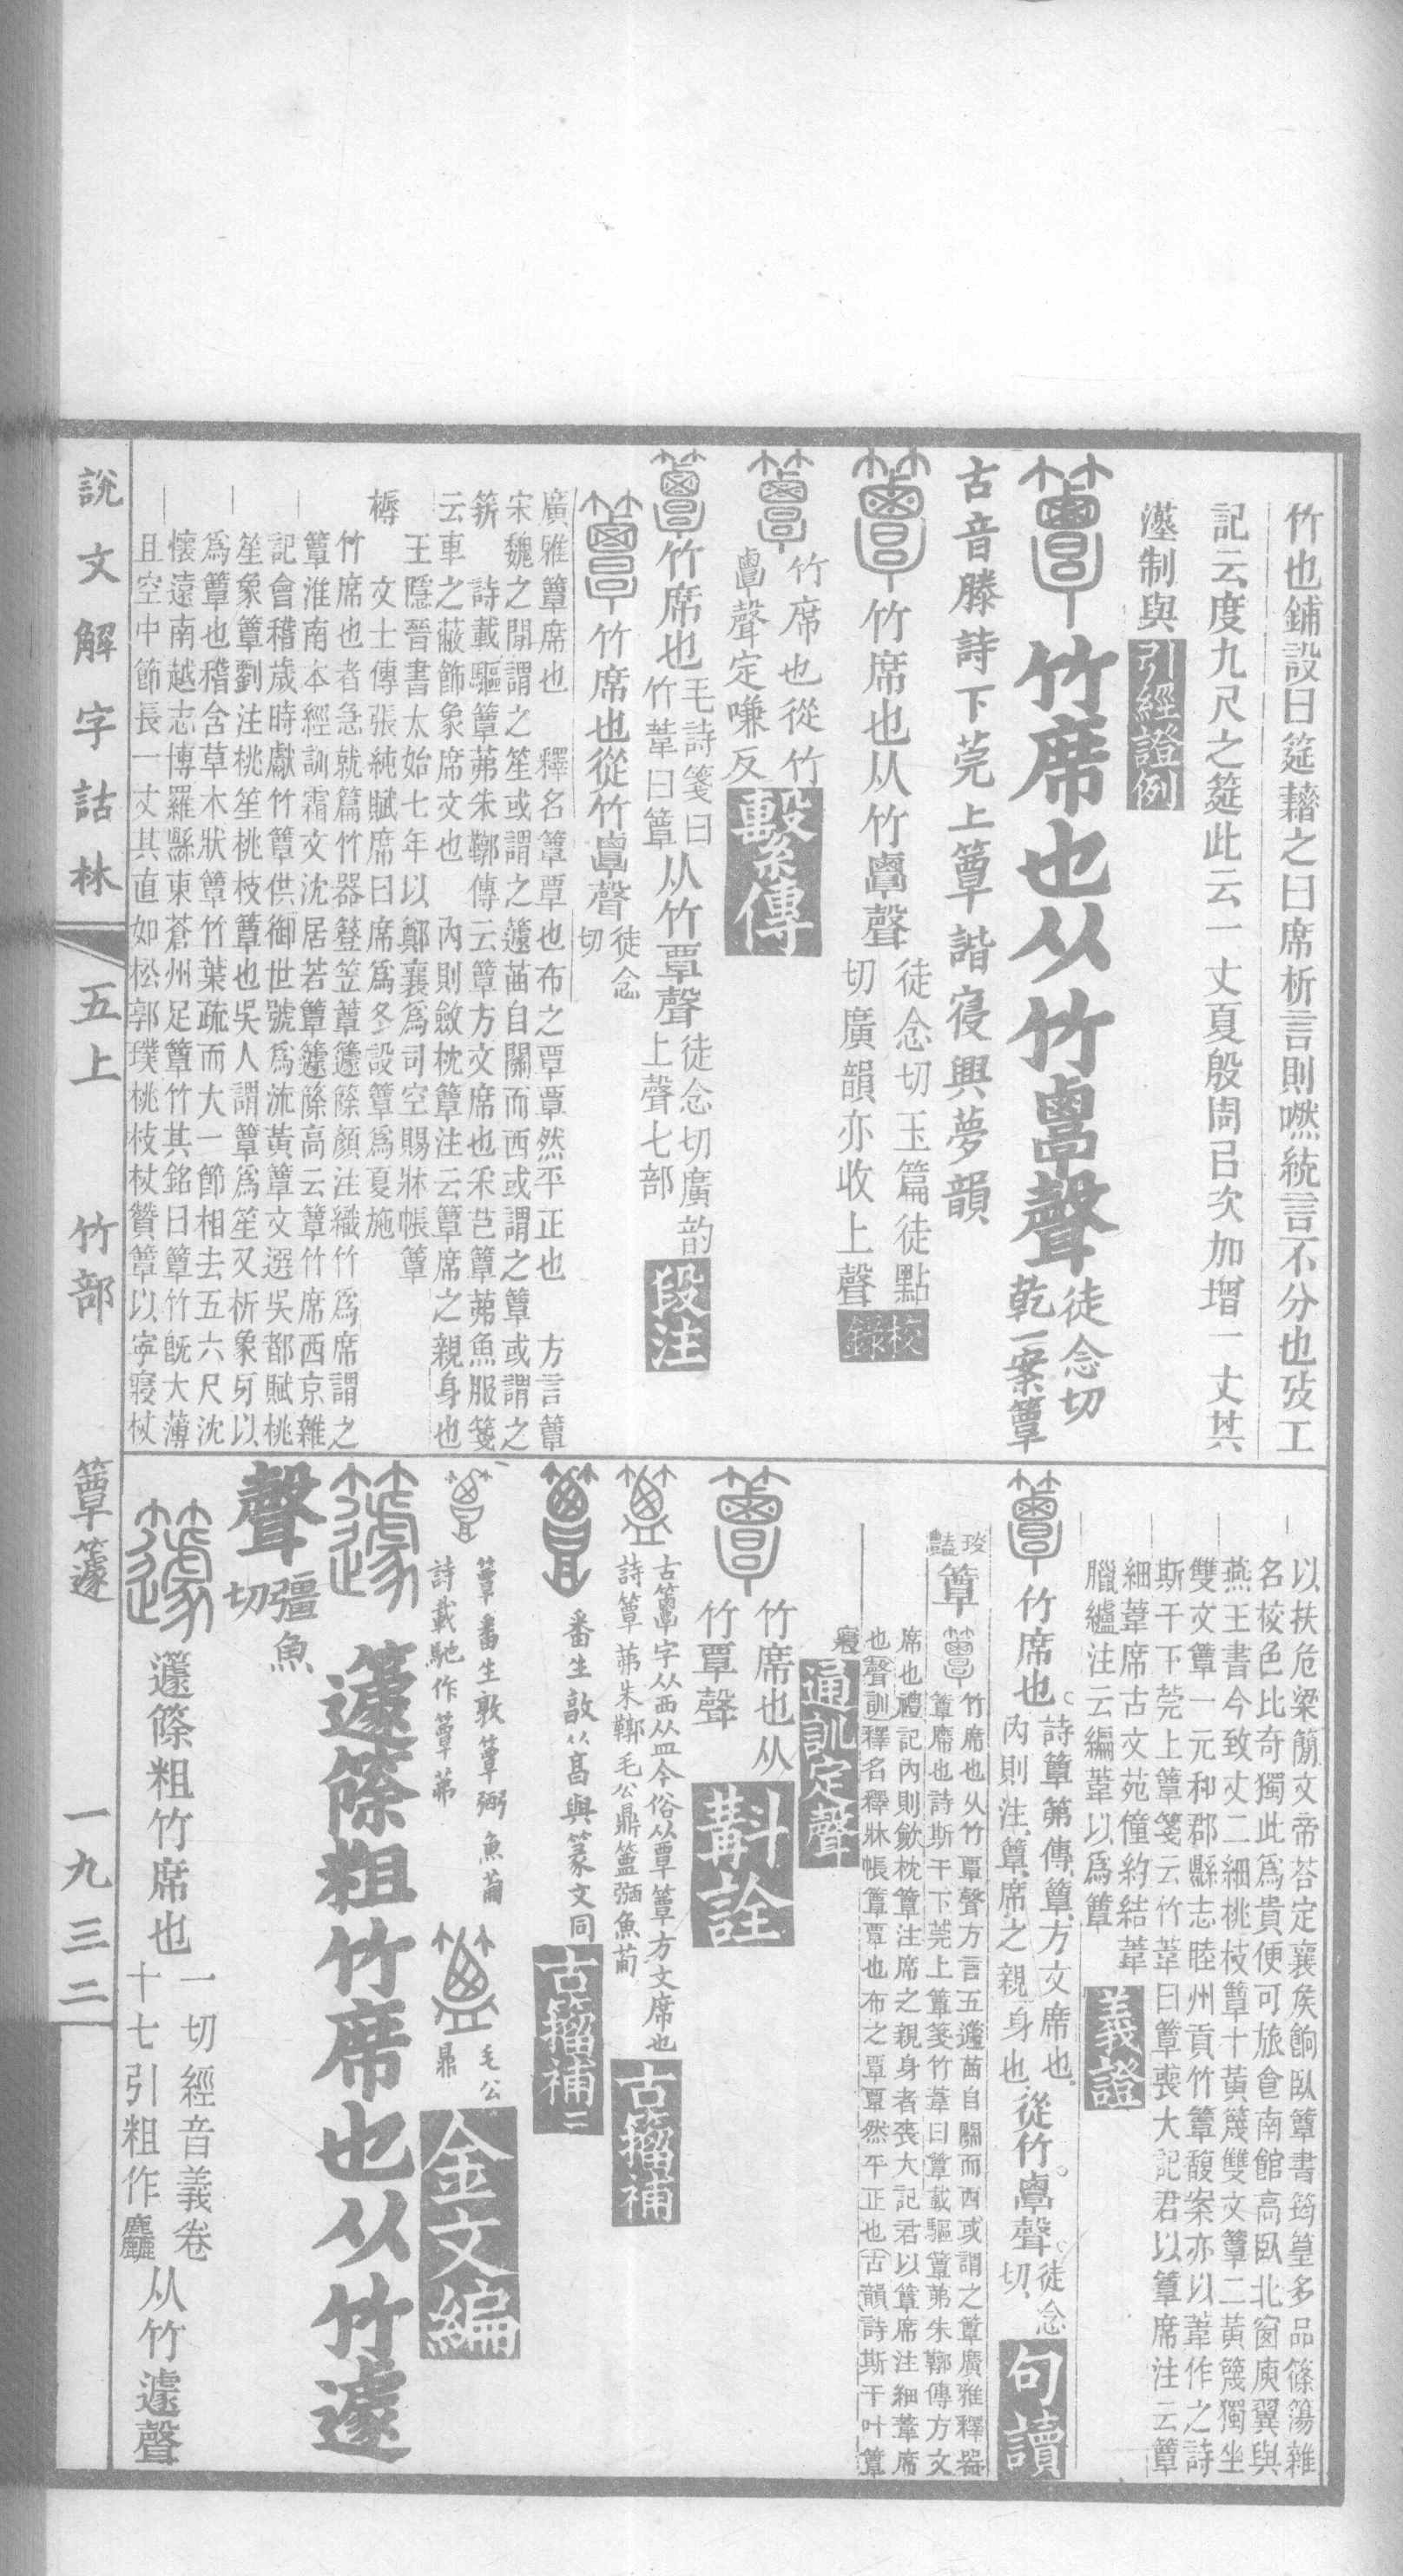 竹也鋪設曰筵藉之曰席析言則嘫統言不分也攷工
記云度九尺之筵此云一丈夏殷周已次加增一丈其
灋制與
引經證例
竹席也从竹𥷚聲
徒念切
乾一案簟
古音滕詩下莞上簟諧寑興夢韻
竹席也从竹𥷚聲
徒念切玉篇徒點
切廣韻亦收上聲
校錄
竹席也從竹
𥷚聲定嗛反
繫傳
竹席也
毛詩箋曰
竹葦曰簟
从竹覃聲
徒念切廣韵
上聲七部
段注
竹席也從竹𥷚聲
徒念
切
廣雅簟席也 釋名簟覃也布之覃覃然平正也 方言簟
宋魏之閒謂之笙或謂之籧苖自關而西或謂之簟或謂之
𥰠 詩載驅簟茀朱鞹傳云簟方文席也采芑簟茀魚服箋
云車之蔽飾象席文也 內則斂枕簟注云簟席之親身也
王隱晉書太始七年以鄭襄爲司空賜牀帳簟
褥 文士傳張純賦席曰席爲冬設簟爲夏施
竹席也者急就篇竹器簦笠簟籧篨顏注織竹爲席謂之
簟淮南本經訓霜文沈居若簟籧篨高云簟竹席西京雜
記會稽歲時獻竹簟供御世號爲流黃簟文選吳都賦桃
笙象簟劉注桃笙桃枝簟也吳人謂簟爲笙又析象牙以
爲簟也稽含草木狀簟竹葉疏而大一節相去五六尺沈
懷遠南越志博羅縣東蒼州足簟竹其銘曰簟竹旣大薄
且空中節長一丈其直如松郭璞桃枝杖贊簟以寧寢杖
以扶危梁簡文帝荅定襄侯餉臥簟書筠篁多品篠簜雜
名校色比奇獨此爲貴便可旅食南館高臥北窗庾翼與
燕王書今致丈二細桃枝簟十黃篾雙文簟二黃篾獨坐
雙文簟一元和郡縣志睦州貢竹簟馥案亦以葦作之詩
斯干下莞上簟箋云竹葦曰簟喪大記君以簟席注云簟
細葦席古文苑僮約結葦
臘纑注云編葦以爲簟
義證
竹席也
詩簟茀傳簟方文席也
內則注簟席之親身也
從竹𥷚聲
徒念
切
句讀
簟
竹席也从竹覃聲方言五籧苗自關而西或謂之簟廣雅釋器
簟席也詩斯干下莞上簟箋竹葦曰簟載驅簟茀朱鞹傳方文
席也禮記內則斂枕簟注席之親身者喪大記君以簟席注細葦席
也聲訓釋名釋牀帳簟覃也布之覃覃然平正也古韻詩斯干叶簟
寢
通訓定聲
竹席也从
竹覃聲
斠詮
古簟字从西从皿今俗从覃簟方文席也
詩簟茀朱鞹毛公鼎簠弻魚葡
古籀補
番生敦从𠾅與篆文同
古籀補二
簟番生敦簟弻魚葡
詩載馳作簟茀
毛公
鼎
金文編
籧篨粗竹席也从竹遽
聲
彊魚
切
籧篨粗竹席也
一切經音義卷
十七引粗作麤
从竹遽聲
說文解字詁林
五上 竹部 簟籧
一九三二